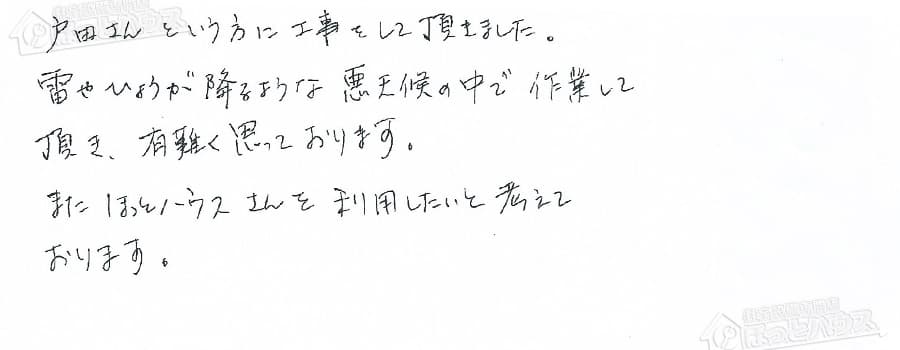 戸田さんという方に工事をして頂きました。
雷やひょうが降るような悪天候の中で作業して
頂き、有難く思っております。
またほっとハウスさんを利用したいと考えて
おります。
ほっとハウス